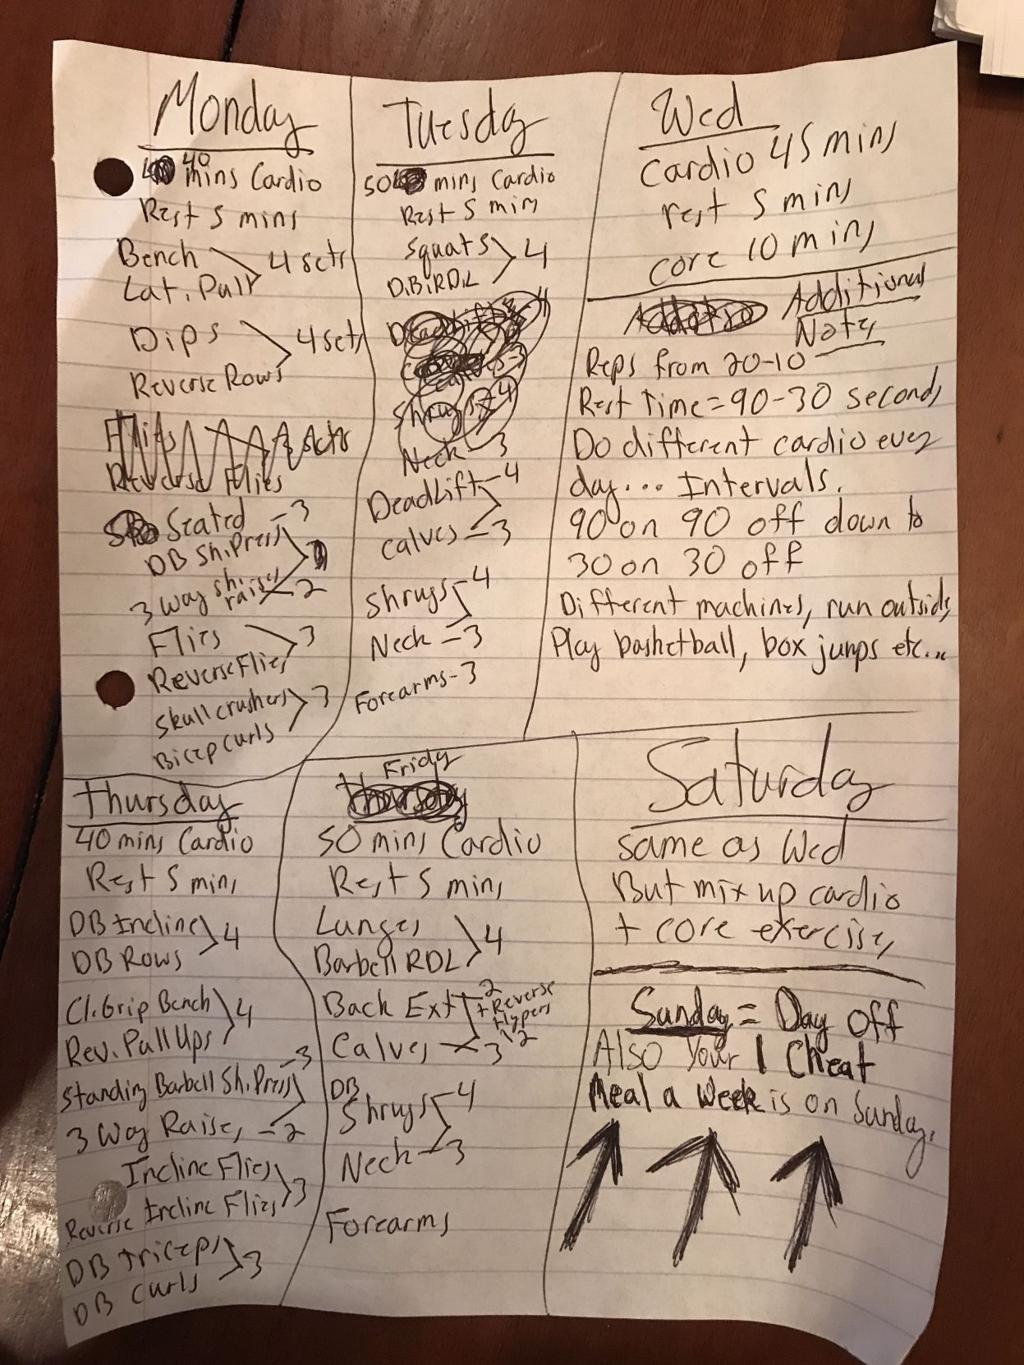 Monday
40 mins Cardio
Rest 5 mins
Bench
Lat. Pull
4 sets
Dips
Reverse Rows
4 sets
Flies
sets
Reverse Flies
Seated - 3
DB Sh. Press
3 way sh. raise - 2
Flies
Reverse Flies
3
Skull crushers
Bicep curls
3
Tuesday
50 mins Cardio
Rest 5 min
Squats
D.B. RDL
4
Shrugs 4
Neck - 3
DeadLift - 4
calves - 3
Shrugs - 4
Neck - 3
Forearms - 3
Wed
Cardio 45 mins
rest 5 mins
core 10 mins
Additional
Note
Reps from 20-10
Rest Time = 90-30 seconds
Do different cardio ever
day... Intervals.
90 on 90 off down to
30 on 30 off
Different machines, run outside,
Play basketball, box jumps etc...
Thursday
40 mins Cardio
Rest 5 min,
DB Incline
DB Rows
4
Cl. Grip Bench
Rev. Pull Ups
4
Standing Barbell Sh. Press - 3
3 Way Raise, - 2
Incline Flies
Reverse Incline Flies
3
DB triceps
DB curls
3
Fridy
Thursday
50 mins Cardio
Rest 5 min,
Lunges
Barbell RDL
4
Back Ext 2
+ Reverse
Hypers
2
Calves - 3
DB
Shrugs - 4
Neck - 3
Forearms
Saturday
same as Wed
But mix up cardio
+ core exercise,
Sunday = Day off
Also Your 1 Cheat
Meal a Week is on Sunday.